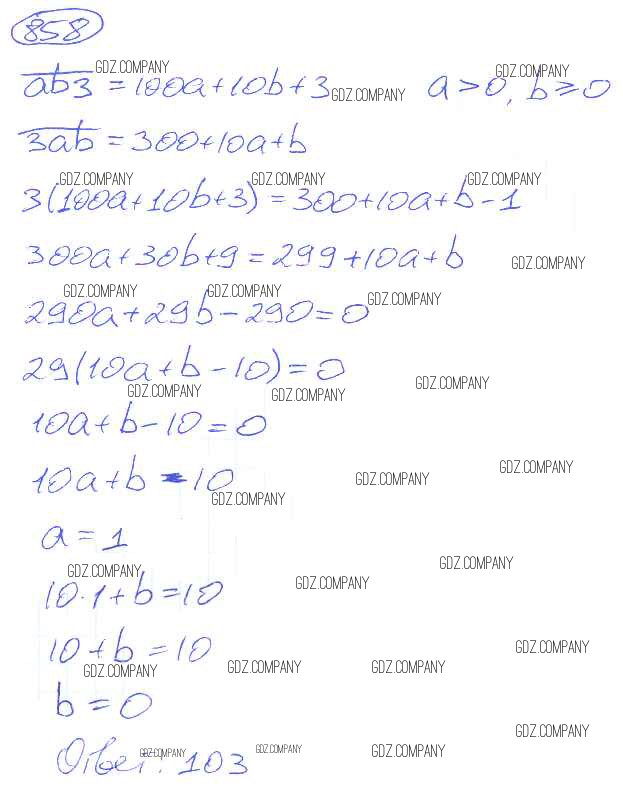 858
GDZ.COMPANY GDZ.COMPANY
ab3 = 100a+10b+3 a>0, b≥0
GDZ.COMPANY
3ab = 300+10a+b
GDZ.COMPANY GDZ.COMPANY GDZ.COMPANY
3(100a+10b+3) = 300+10a+b-1
300a+30b+9 = 299+10a+b
GDZ.COMPANY
GDZ.COMPANY GDZ.COMPANY GDZ.COMPANY
290a+29b-290=0
29(10a+b-10)=0
GDZ.COMPANY GDZ.COMPANY GDZ.COMPANY
10a+b-10=0
GDZ.COMPANY
10a+b = 10
GDZ.COMPANY GDZ.COMPANY
a = 1
GDZ.COMPANY
GDZ.COMPANY GDZ.COMPANY
10·1+b=10
10+b=10
GDZ.COMPANY
GDZ.COMPANY GDZ.COMPANY GDZ.COMPANY
b=0
GDZ.COMPANY
Ответ: 103
GDZ.COMPANY GDZ.COMPANY GDZ.COMPANY